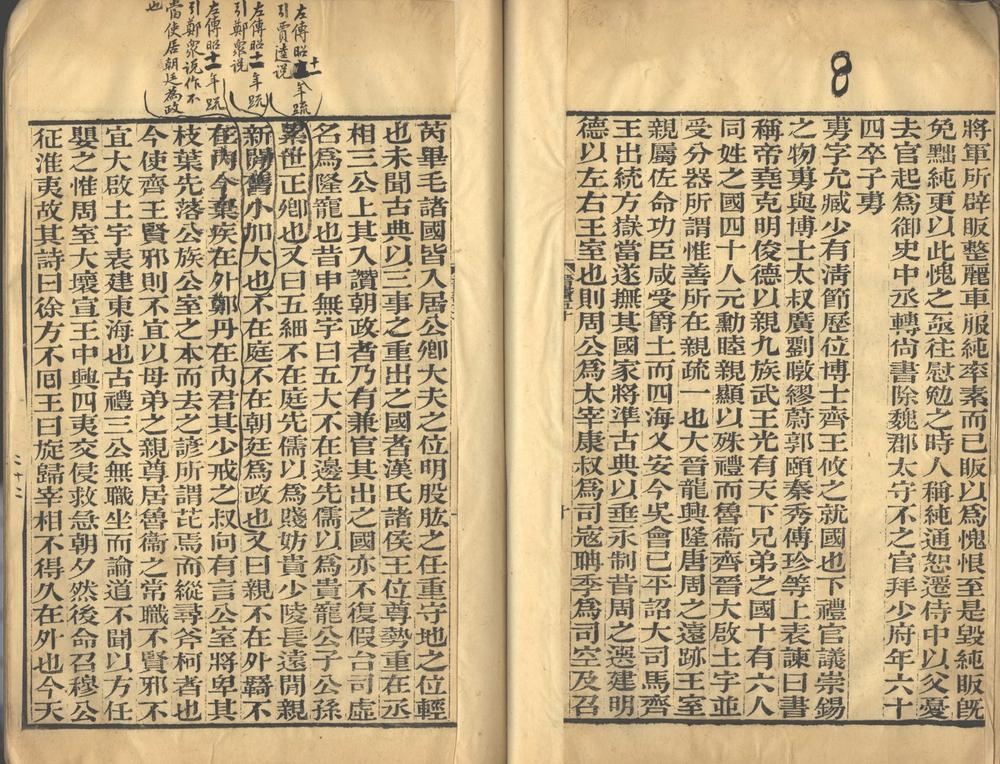 8
將軍所辟眅整麗車服純率素而已眅以爲愧恨至是毀純眅旣
免黜純更以此愧之亟往慰勉之時人稱純通恕遷侍中以父憂
去官起爲御史中丞轉尙書除魏郡太守不之官拜少府年六十
四卒子旉
旉字允臧少有清節歷位博士齊王攸之就國也下禮官議崇錫
之物旉與博士太叔廣劉暾繆蔚郭頤秦秀傅珍等上表諫曰書
稱帝堯克明俊德以親九族武王光有天下兄弟之國十有六人
同姓之國四十人元勳睦親顯以殊禮而魯衞齊晉大啟土宇並
受分器所謂惟善所在親疏一也大晉龍興隆唐周之遠跡王室
親屬佐命功臣咸受爵土而四海乂安今吳會已平詔大司馬齊
王出統方嶽當遂撫其國家將準古典以垂永制昔周之選建明
德以左右王室也則周公爲太宰康叔爲司寇聃季爲司空及召
左傳昭十一年疏
引賈逵說
左傳昭十一年疏
引鄭衆說
左傳昭十一年疏
引鄭衆說作不
當使居朝廷為政
也
芮畢毛諸國皆入居公卿大夫之位明股肱之任重守地之位輕
也未聞古典以三事之重出之國者漢氏諸侯王位尊勢重在丞
相三公上其入讚朝政者乃有兼官其出之國亦不復假台司虛
名爲隆寵也昔申無宇曰五大不在邊先儒以爲貴寵公子公孫
累世正卿也又曰五細不在庭先儒以爲賤妨貴少陵長遠閒親
新閒舊小加大也不在庭不在朝廷爲政也又曰親不在外羇不
在內今棄疾在外鄭丹在內君其少戒之叔向有言公室將卑其
枝葉先落公族公室之本而去之諺所謂芘焉而縱尋斧柯者也
今使齊王賢邪則不宜以母弟之親尊居魯衞之常職不賢邪不
宜大啟土宇表建東海也古禮三公無職坐而論道不聞以方任
嬰之惟周室大壞宣王中興四夷交侵救急朝夕然後命召穆公
征淮夷故其詩曰徐方不回王曰旋歸宰相不得久在外也今天
二十二